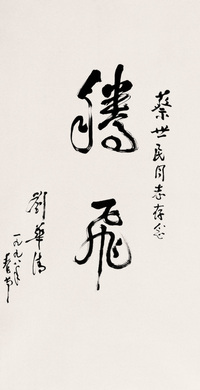 蔡世民同志存念
騰飛
劉華清
一九九八年
春节